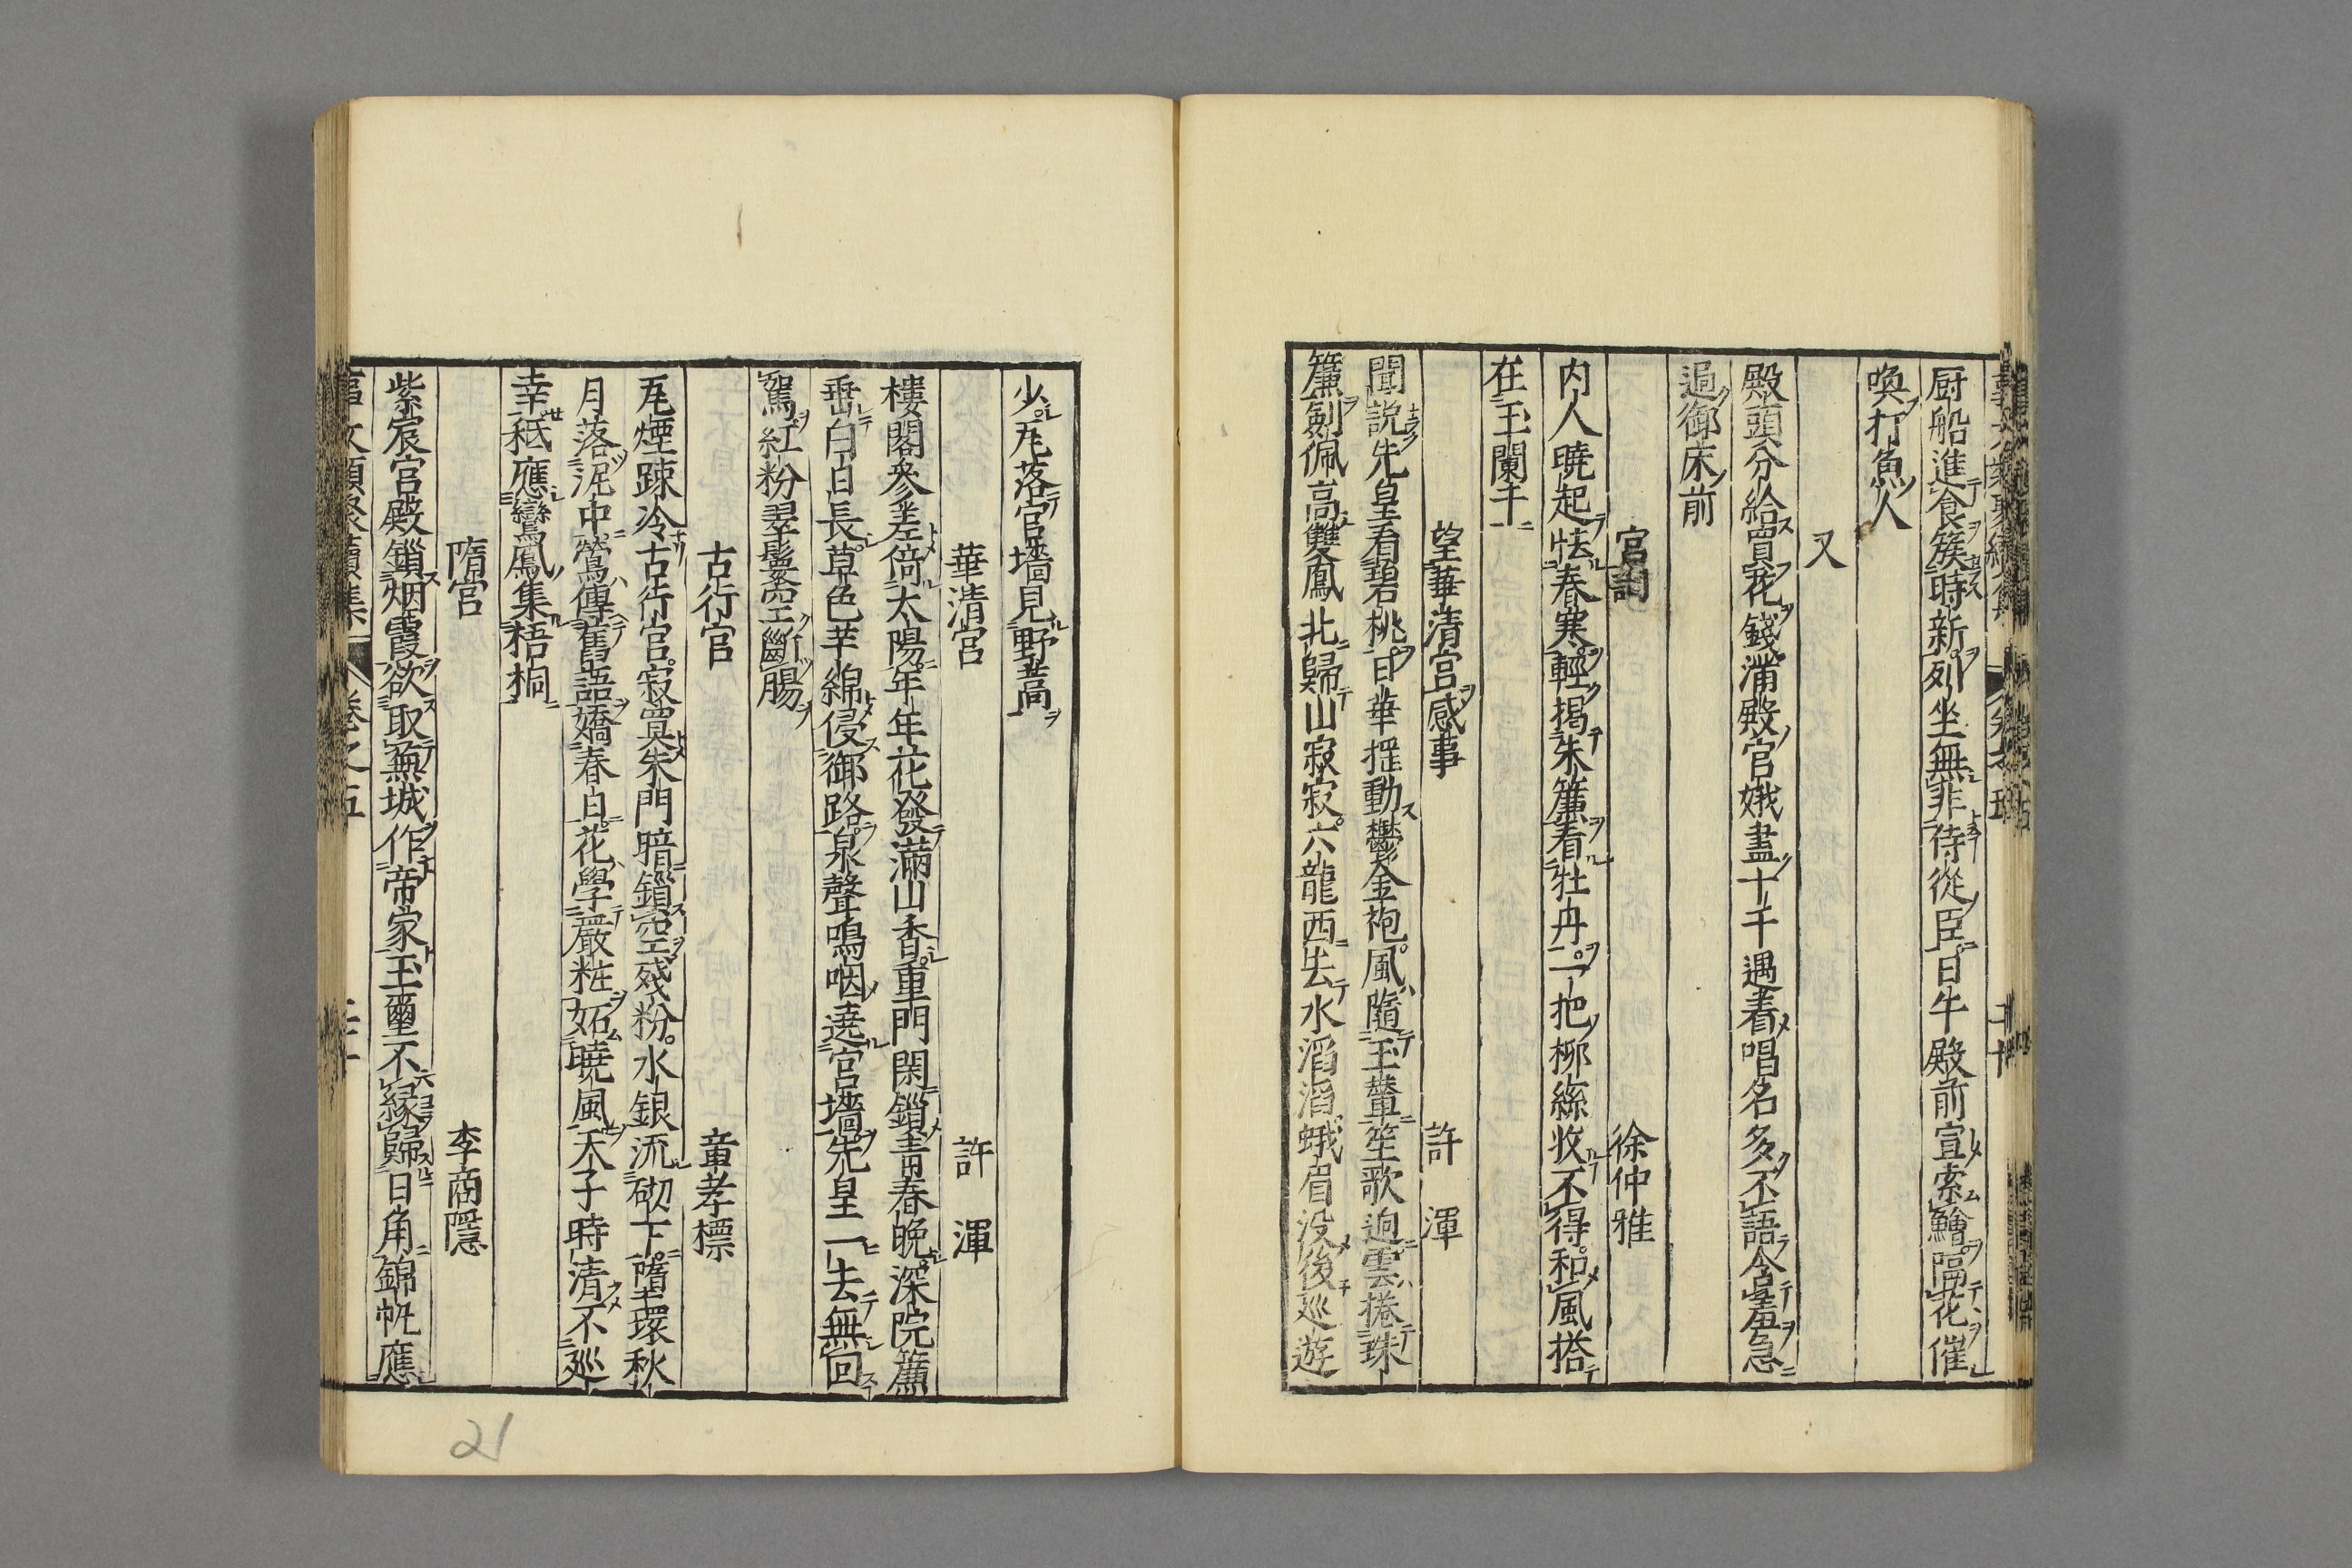 厨船進食簇時新列坐無非侍從臣日午殿前宣索鱠隔花催
喚打魚人
又
殿頭分給買花錢滿殿宮娥盡十千遇着唱名多不語含羞急
過御床前
宮詞 徐仲雅
内人曉起怯春寒輕揭朱簾看牡丹一把柳絲收不得和風搭
在玉闌干
望華清宮感事 許渾
聞説先皇看碧桃日華搖動鬱金袍風隨玉輦笙歌迥雲捲珠
簾劍佩高雙鳳北歸山寂寂六龍西去水滔滔蛾眉没後巡遊
少瓦落宮墻見野蒿
華清宮 許渾
樓閣參差倚太陽年年花發滿山香重門閑鎖青春晩深院簾
垂白日長草色芊綿侵御路泉聲鳴咽遶宮墻先皇一去無回
駕紅粉翠鬟空斷腸
古行宮 章孝標
瓦煙踈冷古行宮寂寞朱門暗鎖空殘粉水銀流砌下墮環秋
月落泥中鶯傳舊語嬌春日花學嚴粧妬曉風天子時清不巡
幸秪應鸞鳳集梧桐
隋宮 李商隱
紫宸宮殿鎖烟霞欲取蕪城作帝家玉璽不縁歸日角錦帆應
事文類聚續集 卷之五
21